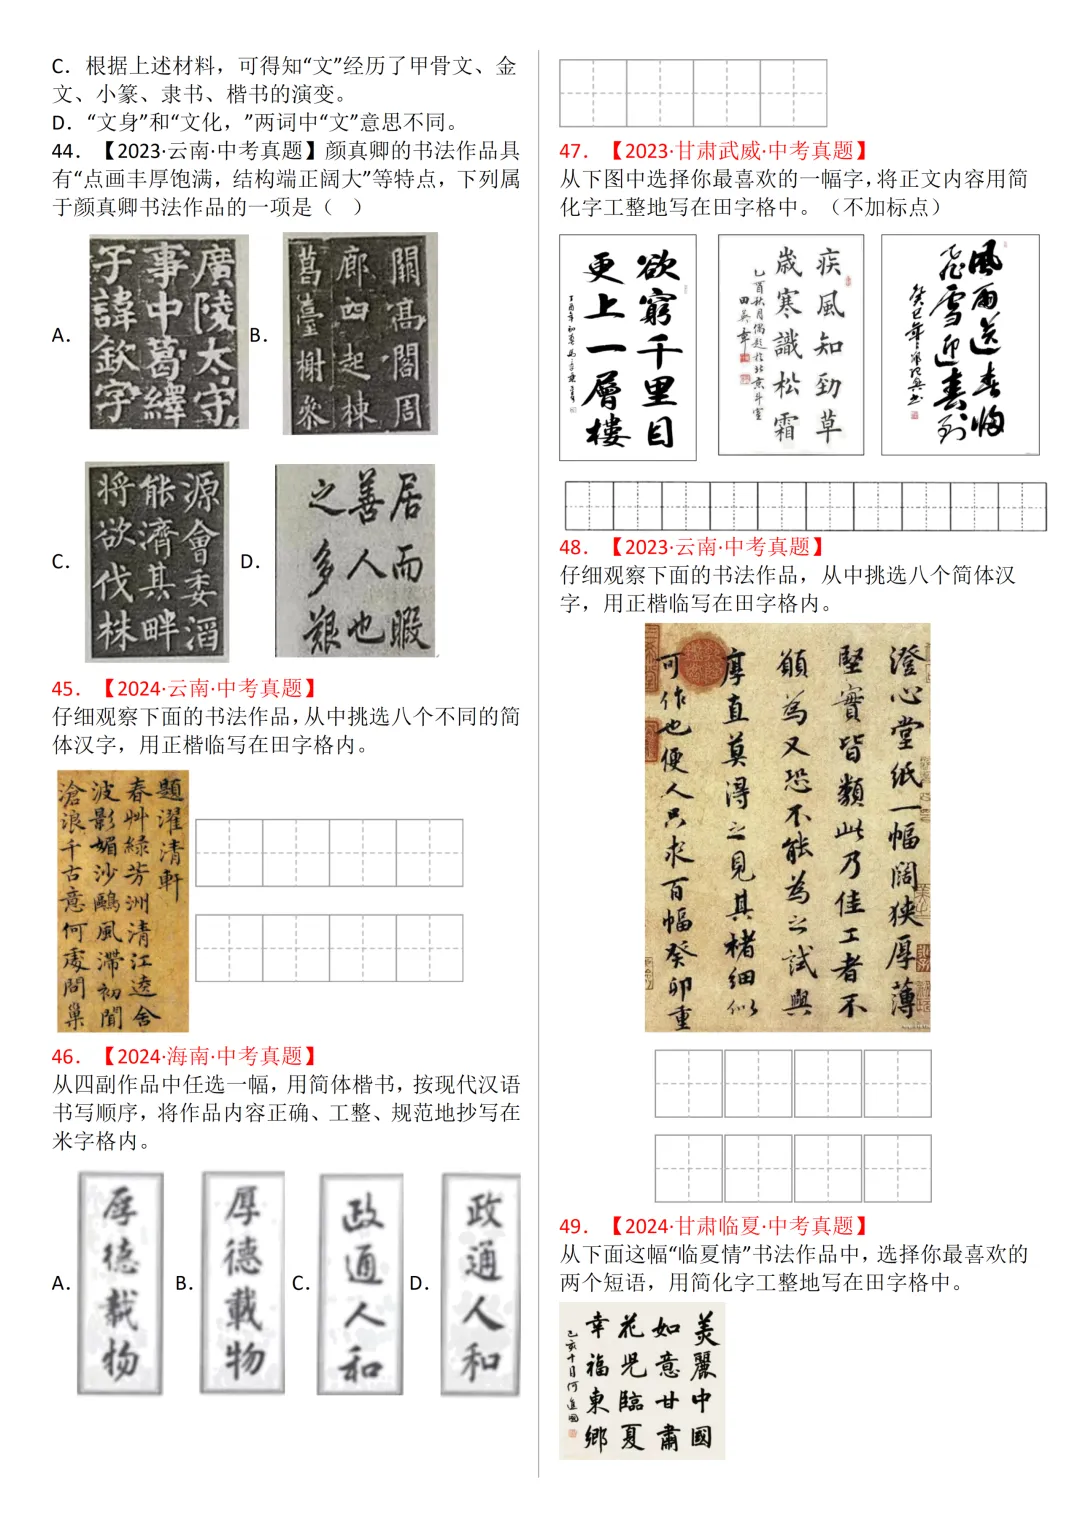 C．根据上述材料，可得知“文”经历了甲骨文、金
文、小篆、隶书、楷书的演变。
D．“文身”和“文化，”两词中“文”意思不同。
44．【2023·云南·中考真题】颜真卿的书法作品具
有“点画丰厚饱满，结构端正阔大”等特点，下列属
于颜真卿书法作品的一项是（ ）
A．
廣陵太守
事中葛繹
子諱欽字
B．
關高閣周
廊四起棟
葛臺榭參
C．
源會委滔
能濟其畔
将欲伐林
D．
居而暇
善人也
之多艱
45．【2024·云南·中考真题】
仔细观察下面的书法作品，从中挑选八个不同的简
体汉字，用正楷临写在田字格内。
題濯清軒
春艸綠芳洲清江遶舍
波影媚沙鷗風滞初聞
滄浪千古意何處問巢
46．【2024·海南·中考真题】
从四副作品中任选一幅，用简体楷书，按现代汉语
书写顺序，将作品内容正确、工整、规范地抄写在
米字格内。
A．
厚德載物
B．
厚德載物
C．
政通人和
D．
政通人和
47．【2023·甘肃武威·中考真题】
从下图中选择你最喜欢的一幅字，将正文内容用简
化字工整地写在田字格中。（不加标点）
欲窮千里目
更上一層樓
疾風知勁草
歲寒識松霜
風雨送春歸
飛雪迎春到
48．【2023·云南·中考真题】
仔细观察下面的书法作品，从中挑选八个简体汉
字，用正楷临写在田字格内。
澄心堂紙一幅闊狹厚薄
堅實皆類此乃佳工者不
願為又恐不能為之試與
厚直莫得之見其楮細似
可作也便人只求百幅癸卯重
49．【2024·甘肃临夏·中考真题】
从下面这幅“临夏情”书法作品中，选择你最喜欢的
两个短语，用简化字工整地写在田字格中。
美麗中國
如意甘肅
花兒臨夏
幸福東鄉